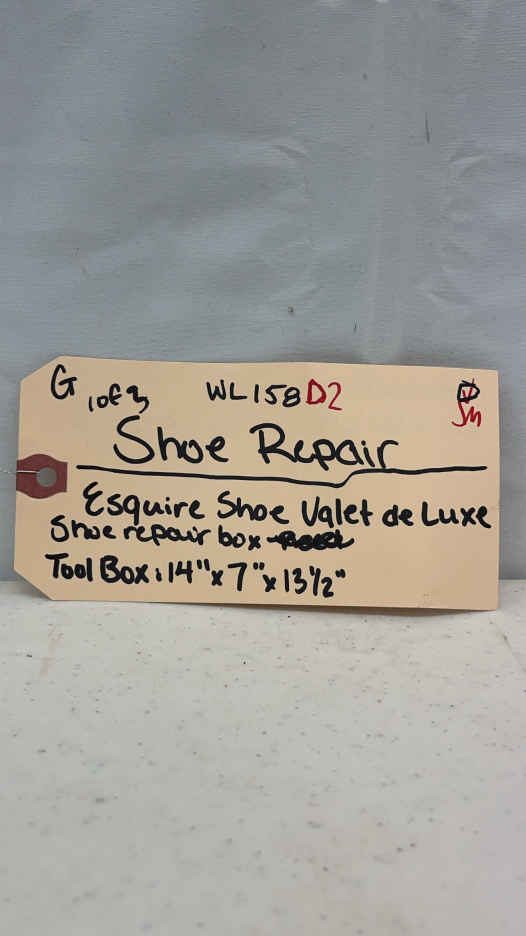 G 1 of 3 WL158 D2 SM
Shoe Repair
Esquire Shoe Valet de Luxe
Shoe repair box
Tool Box: 14" x 7" x 13 1/2"